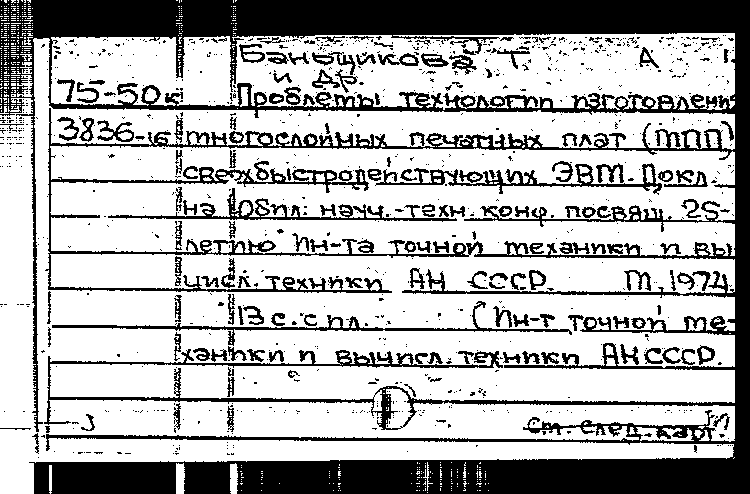 Баньщикова Т А
и др.
75-50к Проблемы технологии изготовления
3836-16 многослойных печатных плат (МПП)
сверхбыстродействующих ЭВМ. Докл.
на Юбил. науч.-техн. конф. посвящ. 25-
летию Ин-та точной механики и вы
числ. техники АН СССР. М, 1974.
13 с. с ил. (Ин-т точной ме-
ханики и вычисл. техники АН СССР.
См. след. карт.